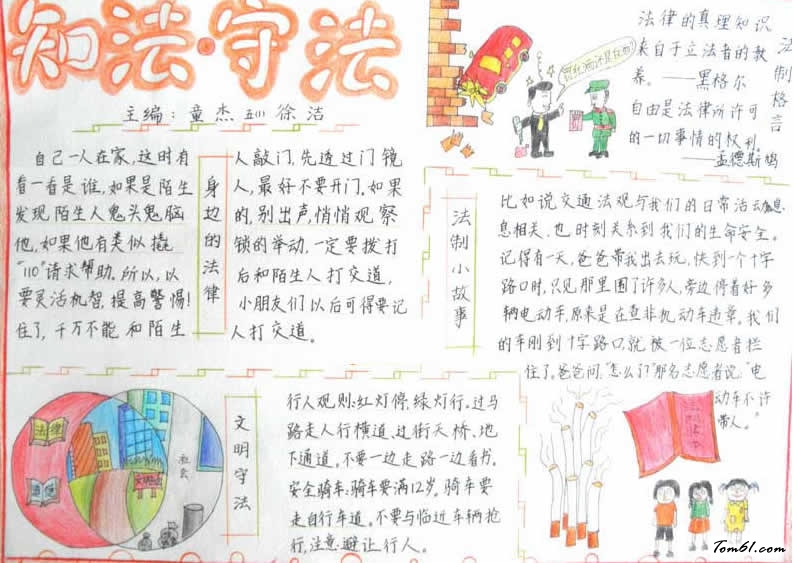 知法·守法
主编：童杰 五(1) 徐洁
法律的真理知识
来自于立法者的教
养。——黑格尔
自由是法律所许可
的一切事情的权利。
——孟德斯鸠
法制格言
身边的法律
自己一人在家,这时有
人敲门,先透过门镜
看一看是谁,如果是陌生
人,最好不要开门。如果
发现陌生人鬼头鬼脑
的,别出声,悄悄观察
他,如果他有类似撬
锁的举动,一定要拨打
"110"请求帮助,所以,以
后和陌生人打交道,
要灵活机智,提高警惕!
小朋友们以后可得要记
住了,千万不能和陌生
人打交道。
法制小故事
比如说交通法观与我们的日常活动息
息相关,也时刻关系到我们的生命安全。
记得有一天,爸爸带我出去玩,快到一个十字
路口时,只见那里围了许多人,旁边停着好多
辆电动车,原来是在查非机动车违章。我们
的车刚到十字路口,就被一位志愿者拦
住了。爸爸问,"怎么了?"那名志愿者说:"电
动车不许
带人。"
文明守法
行人观则:红灯停,绿灯行。过马
路走人行横道、过街天桥、地
下通道。不要一边走路一边看书。
安全骑车:骑车要满12岁。骑车要
走自行车道。不要与临近车辆抢
行,注意避让行人。
法律
道德
社会
Tom61.com